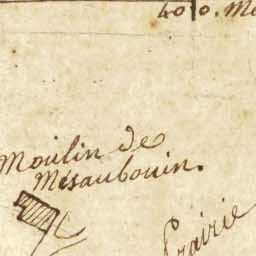 400. Me
Moulin de
Mésaubouin.
Prairie